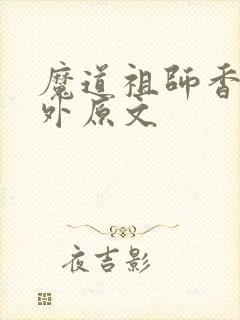 魔道祖師香
外原文
夜吉影